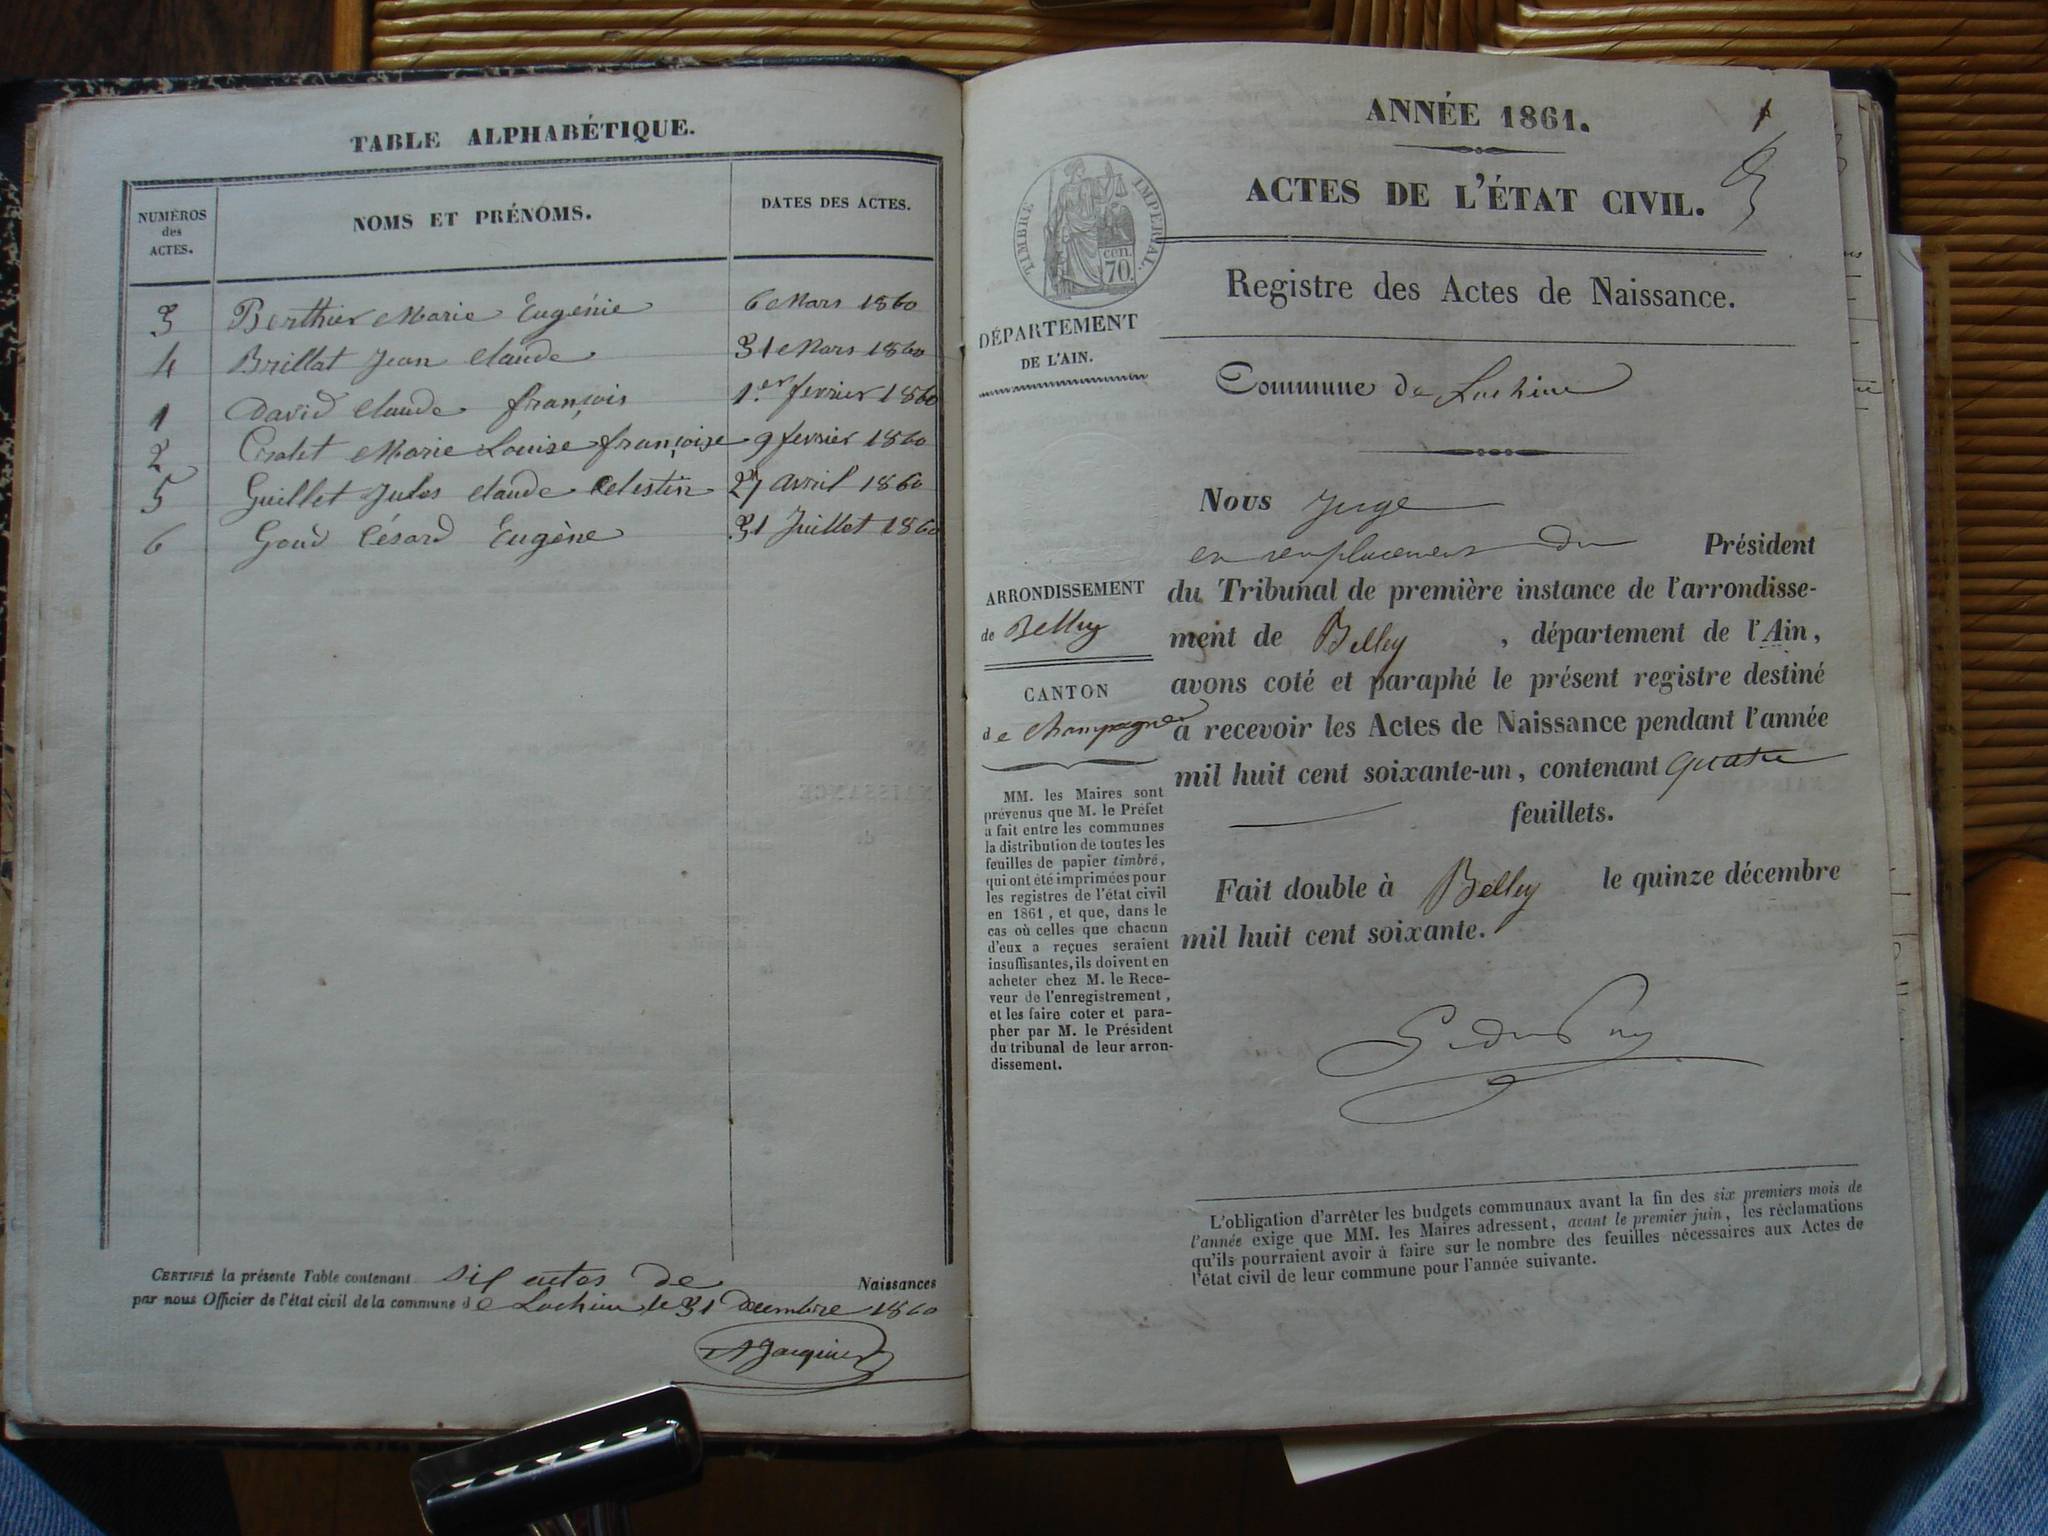 TABLE ALPHABÉTIQUE.
NUMÉROS
des
ACTES.
NOMS ET PRÉNOMS.
DATES DES ACTES.
3 Berthier Marie Eugénie 6 Mars 1860
4 Brillat Jean Claude 31 Mars 1860
1 David Claude françois 1.er fevrier 1860
2 Marie Louise françoise 9 fevrier 1860
5 Guillet Jules Claude Celestin 27 avril 1860
6 Goud Césard Eugène 31 Juillet 1860
CERTIFIÉ la présente Table contenant six actes de Naissances
par nous Officier de l'état civil de la commune de Lochieu le 31 Decembre 1860
Jacquier
ANNÉE 1861.
1
ACTES DE L'ÉTAT CIVIL.
TIMBRE IMPERIAL.
70 cen
Registre des Actes de Naissance.
DÉPARTEMENT
DE L'AIN.
Commune de Lochieu
Nous Juge
en remplacement du Président
du Tribunal de première instance de l'arrondisse-
ment de Belley , département de l'Ain,
avons coté et paraphé le présent registre destiné
à recevoir les Actes de Naissance pendant l'année
mil huit cent soixante-un, contenant quatre
feuillets.
Fait double à Belley le quinze décembre
mil huit cent soixante.
ARRONDISSEMENT
de Belley
CANTON
de Champagne
MM. les Maires sont
prévenus que M. le Préfet
a fait entre les communes
la distribution de toutes les
feuilles de papier timbré,
qui ont été imprimées pour
les registres de l'état civil
en 1861, et que, dans le
cas où celles que chacun
d'eux a reçues seraient
insuffisantes, ils doivent en
acheter chez M. le Rece-
veur de l'enregistrement,
et les faire coter et para-
pher par M. le Président
du tribunal de leur arron-
dissement.
L'obligation d'arrêter les budgets communaux avant la fin des six premiers mois de
l'année exige que MM. les Maires adressent, avant le premier juin, les réclamations
qu'ils pourraient avoir à faire sur le nombre des feuilles nécessaires aux Actes de
l'état civil de leur commune pour l'année suivante.